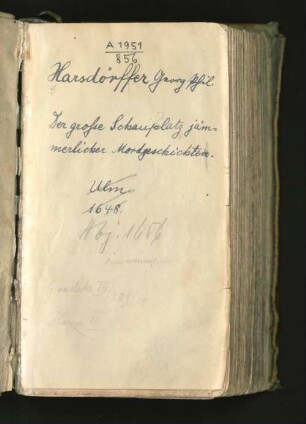 A 1951
856
Harsdörffer Georg Phil
Der große Schauplatz jäm-
merlicher Mordgeschichten.
Ulm
1648.
1656